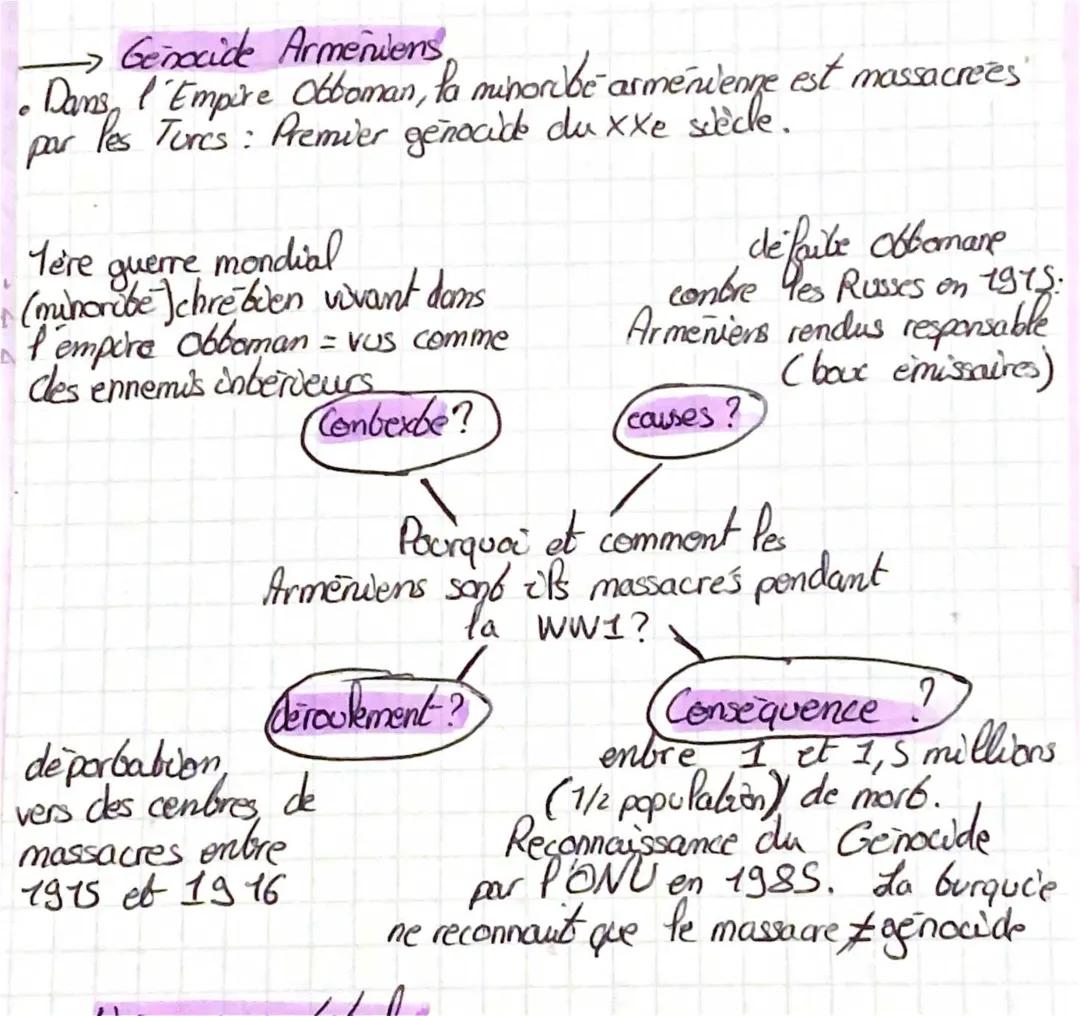 → Génocide Arméniens
• Dans l'Empire Ottoman, la minorité arménienne est massacrées
par les Turcs : Premier génocide du XXe siècle.
1ère guerre mondial
(minorité) chrétien vivant dans
l'empire Ottoman = vus comme
des ennemis intérieurs
défaite Ottomane
contre les Russes en 1915:
Arméniers rendus responsable
(boux émissaires)
Contexte ?
causes ?
Pourquoi et comment les
Arméniens sont ils massacrés pendant
la WW1 ?
déroulement ?
Conséquence ?
déportation
vers des centres de
massacres entre
1915 et 1916
entre 1 et 1,5 millions
(1/2 population) de mort.
Reconnaissance du Génocide
par l'ONU en 1985. La turquie
ne reconnait que le massacre ≠ génocide